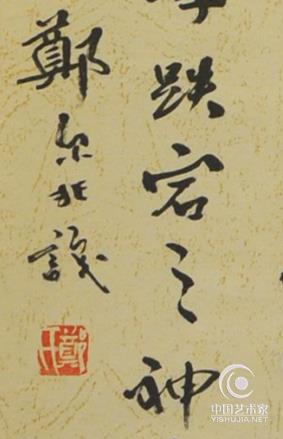 跌宕之神
鄭識
鄭
中国艺术家
YISHUJIA.NET